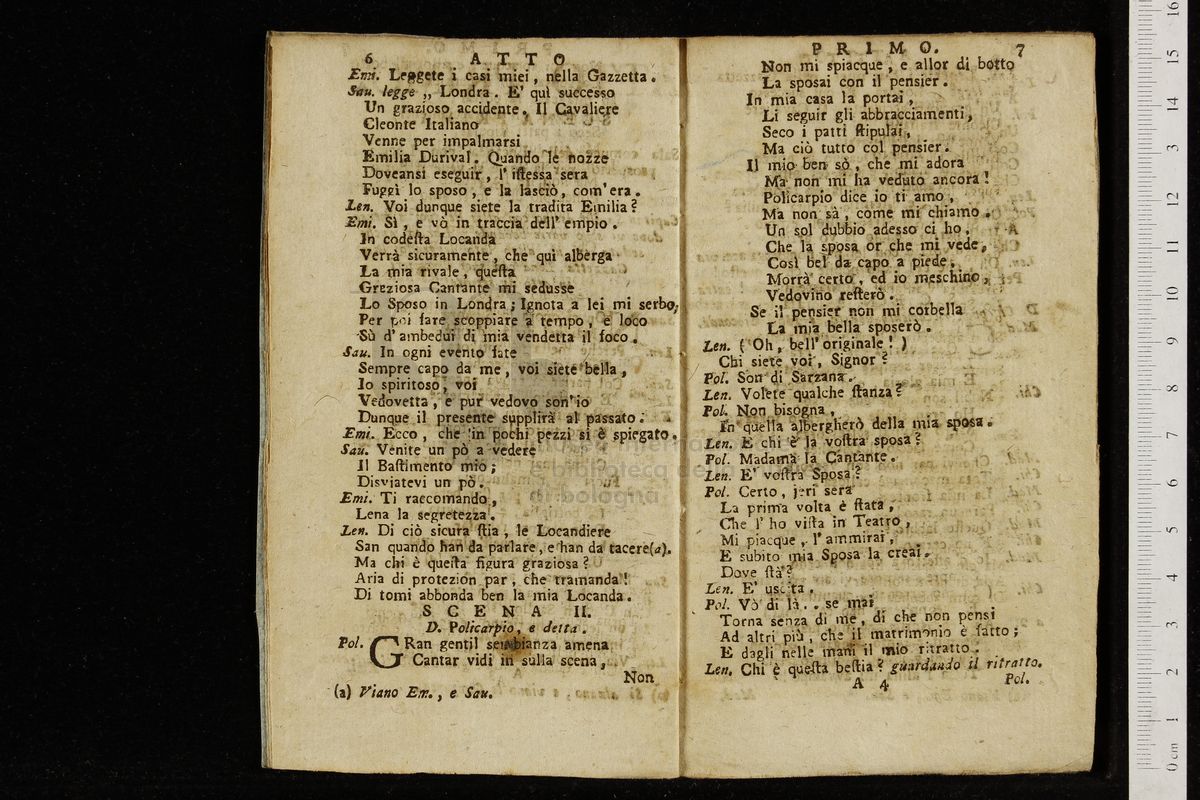 6 ATTO
Emi. Leggete i casi miei, nella Gazzetta.
Sau. legge „ Londra. E' quì successo
Un grazioso accidente. Il Cavaliere
Cleonte Italiano
Venne per impalmarsi
Emilia Durival. Quando le nozze
Doveansi eseguir, l' iſtessa sera
Fuggì lo sposo, e la lasciò, com'era.
Len. Voi dunque siete la tradita Emilia?
Emi. Sì, e vò in traccia dell' empio.
In codeſta Locanda
Verrà sicuramente, che quì alberga
La mia rivale, queſta
Graziosa Cantante mi sedusse
Lo Sposo in Londra; Ignota a lei mi serbo,
Per poi fare scoppiare a tempo, e loco
Sù d' ambedui di mia vendetta il foco.
Sau. In ogni evento fate
Sempre capo da me, voi siete bella,
Io spiritoso, voi
Vedovetta, e pur vedovo son'io
Dunque il presente supplirà al passato.
Emi. Ecco, che in pochi pezzi si è spiegato.
Sau. Venite un pò a vedere
Il Baſtimento mio;
Disviatevi un pò.
Emi. Ti raccomando,
Lena la segretezza.
Len. Di ciò sicura ſtia, le Locandiere
San quando han da parlare, e han da tacere(a).
Ma chi è queſta figura graziosa?
Aria di protezion par, che tramanda!
Di tomi abbonda ben la mia Locanda.
SCENA II.
D. Policarpio, e detta.
Pol. GRan gentil sembianza amena
Cantar vidi in sulla scena,
Non
(a) Viano Em., e Sau.
PRIMO. 7
Non mi spiacque, e allor di botto
La sposai con il pensier.
In mia casa la portai,
Li seguir gli abbracciamenti,
Seco i patti ſtipulai,
Ma ciò tutto col pensier.
Il mio ben sò, che mi adora
Ma non mi ha veduto ancora!
Policarpio dice io ti amo,
Ma non sà, come mi chiamo.
Un sol dubbio adesso ci ho,
Che la sposa or che mi vede,
Così bel da capo a piede,
Morrà certo, ed io meschino,
Vedovino reſterò.
Se il pensier non mi corbella
La mia bella sposerò.
Len. (Oh, bell' originale!)
Chi siete voi, Signor?
Pol. Son di Sarzana.
Len. Volete qualche ſtanza?
Pol. Non bisogna,
In quella albergherò della mia sposa.
Len. E chi è la voſtra sposa?
Pol. Madama la Cantante.
Len. E' voſtra Sposa?
Pol. Certo, jeri sera
La prima volta è ſtata,
Che l' ho viſta in Teatro,
Mi piacque, l' ammirai,
E subito mia Sposa la creai.
Dove ſtà?
Len. E' uscita.
Pol. Vò di là.. se mai
Torna senza di me, di che non pensi
Ad altri più, che il matrimonio è fatto;
E dagli nelle mani il mio ritratto.
Len. Chi è queſta beſtia? guardando il ritratto.
A 4 Pol.